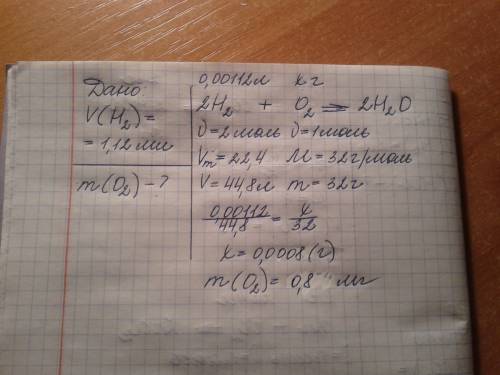 Дано:
V(H₂)=
= 1,12 мл
m(O₂) - ?
0,00112л x г
2H₂ + O₂ = 2H₂O
ϑ=2моль ϑ=1моль
Vm=22,4 M=32г/моль
V=44,8л m=32г
0,00112/44,8 = x/32
x=0,0008(г)
m(O₂)=0,8 мг